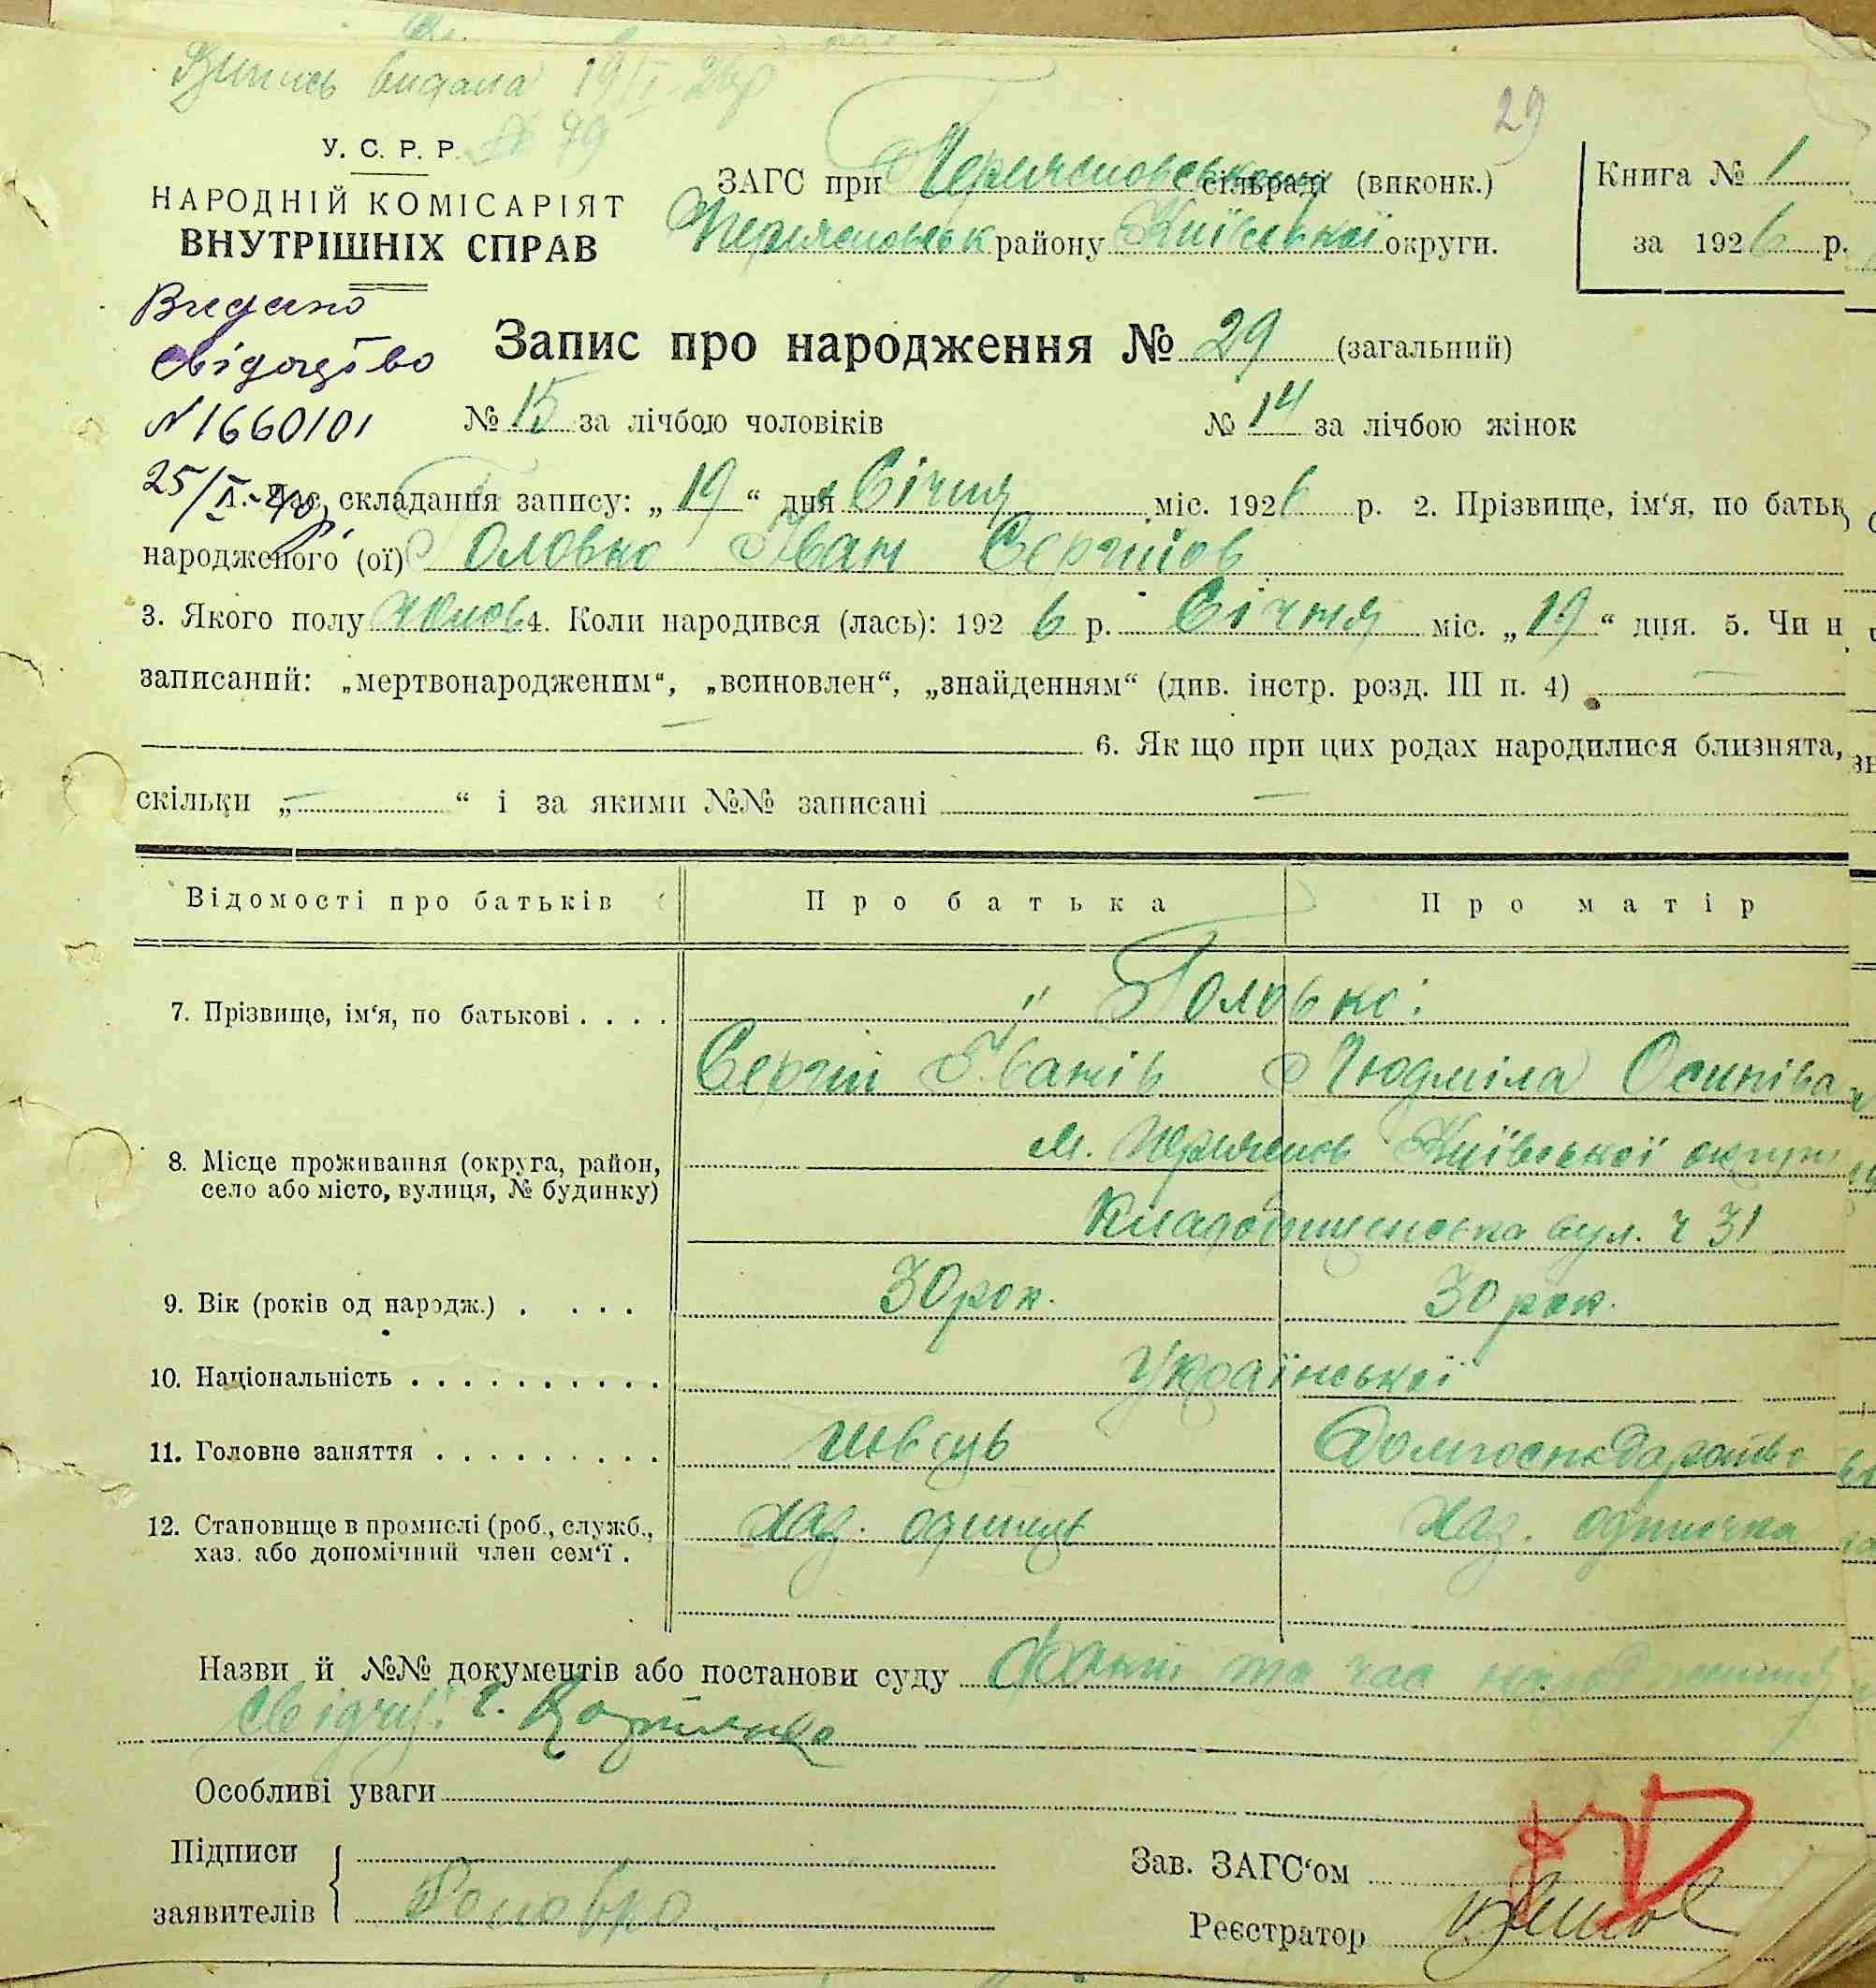 Випись видана 19/I 26р
№ 79
29
У. С. Р. Р.
НАРОДНІЙ КОМІСАРІЯТ
ВНУТРІШНІХ СПРАВ
ЗАГС при сільраді (виконк.)
району Київської округи.
Книга № 1
за 1926 р.
Видано
свідоцтво
N 1660101
25/
Запис про народження № 29 (загальний)
№ 15 за лічбою чоловіків № 14 за лічбою жінок
1. Час складання запису: „ 19 “ дня Січня міс. 1926 р. 2. Прізвище, ім‘я, по батьк
народженого (ої) Головко Іван Сергіїв
3. Якого полу 4. Коли народився (лась): 1926 р. Січня міс. „ 19 “ дня. 5. Чи н
записаний: „мертвонародженим“, „всиновлен“, „знайденням“ (див. інстр. розд. III п. 4) —
— 6. Як що при цих родах народилися близнята,
скільки „ — “ і за якими №№ записані —
Відомості про батьків Про батька Про матір
7. Прізвище, ім‘я, по батькові . . . . Головко:
Сергій Іванів Людміла Осипівна
8. Місце проживання (округа, район, м. Київської округи
село або місто, вулиця, № будинку) Кладовищенська вул. ч 31
9. Вік (років од народж.) . . . . 30 рок. 30 рок.
10. Національність . . . . . . . . . . Української
11. Головне заняття . . . . . . . . . швець Домгосподарство
12. Становище в промислі (роб., служб., хаз. одинець хаз. одиничка
хаз. або допомічний член сем‘ї .
Назви й №№ документів або постанови суду Факт та час народження
свідчу:
Особливі уваги
Підписи
заявителів Головко
Зав. ЗАГС‘ом
Реєстратор